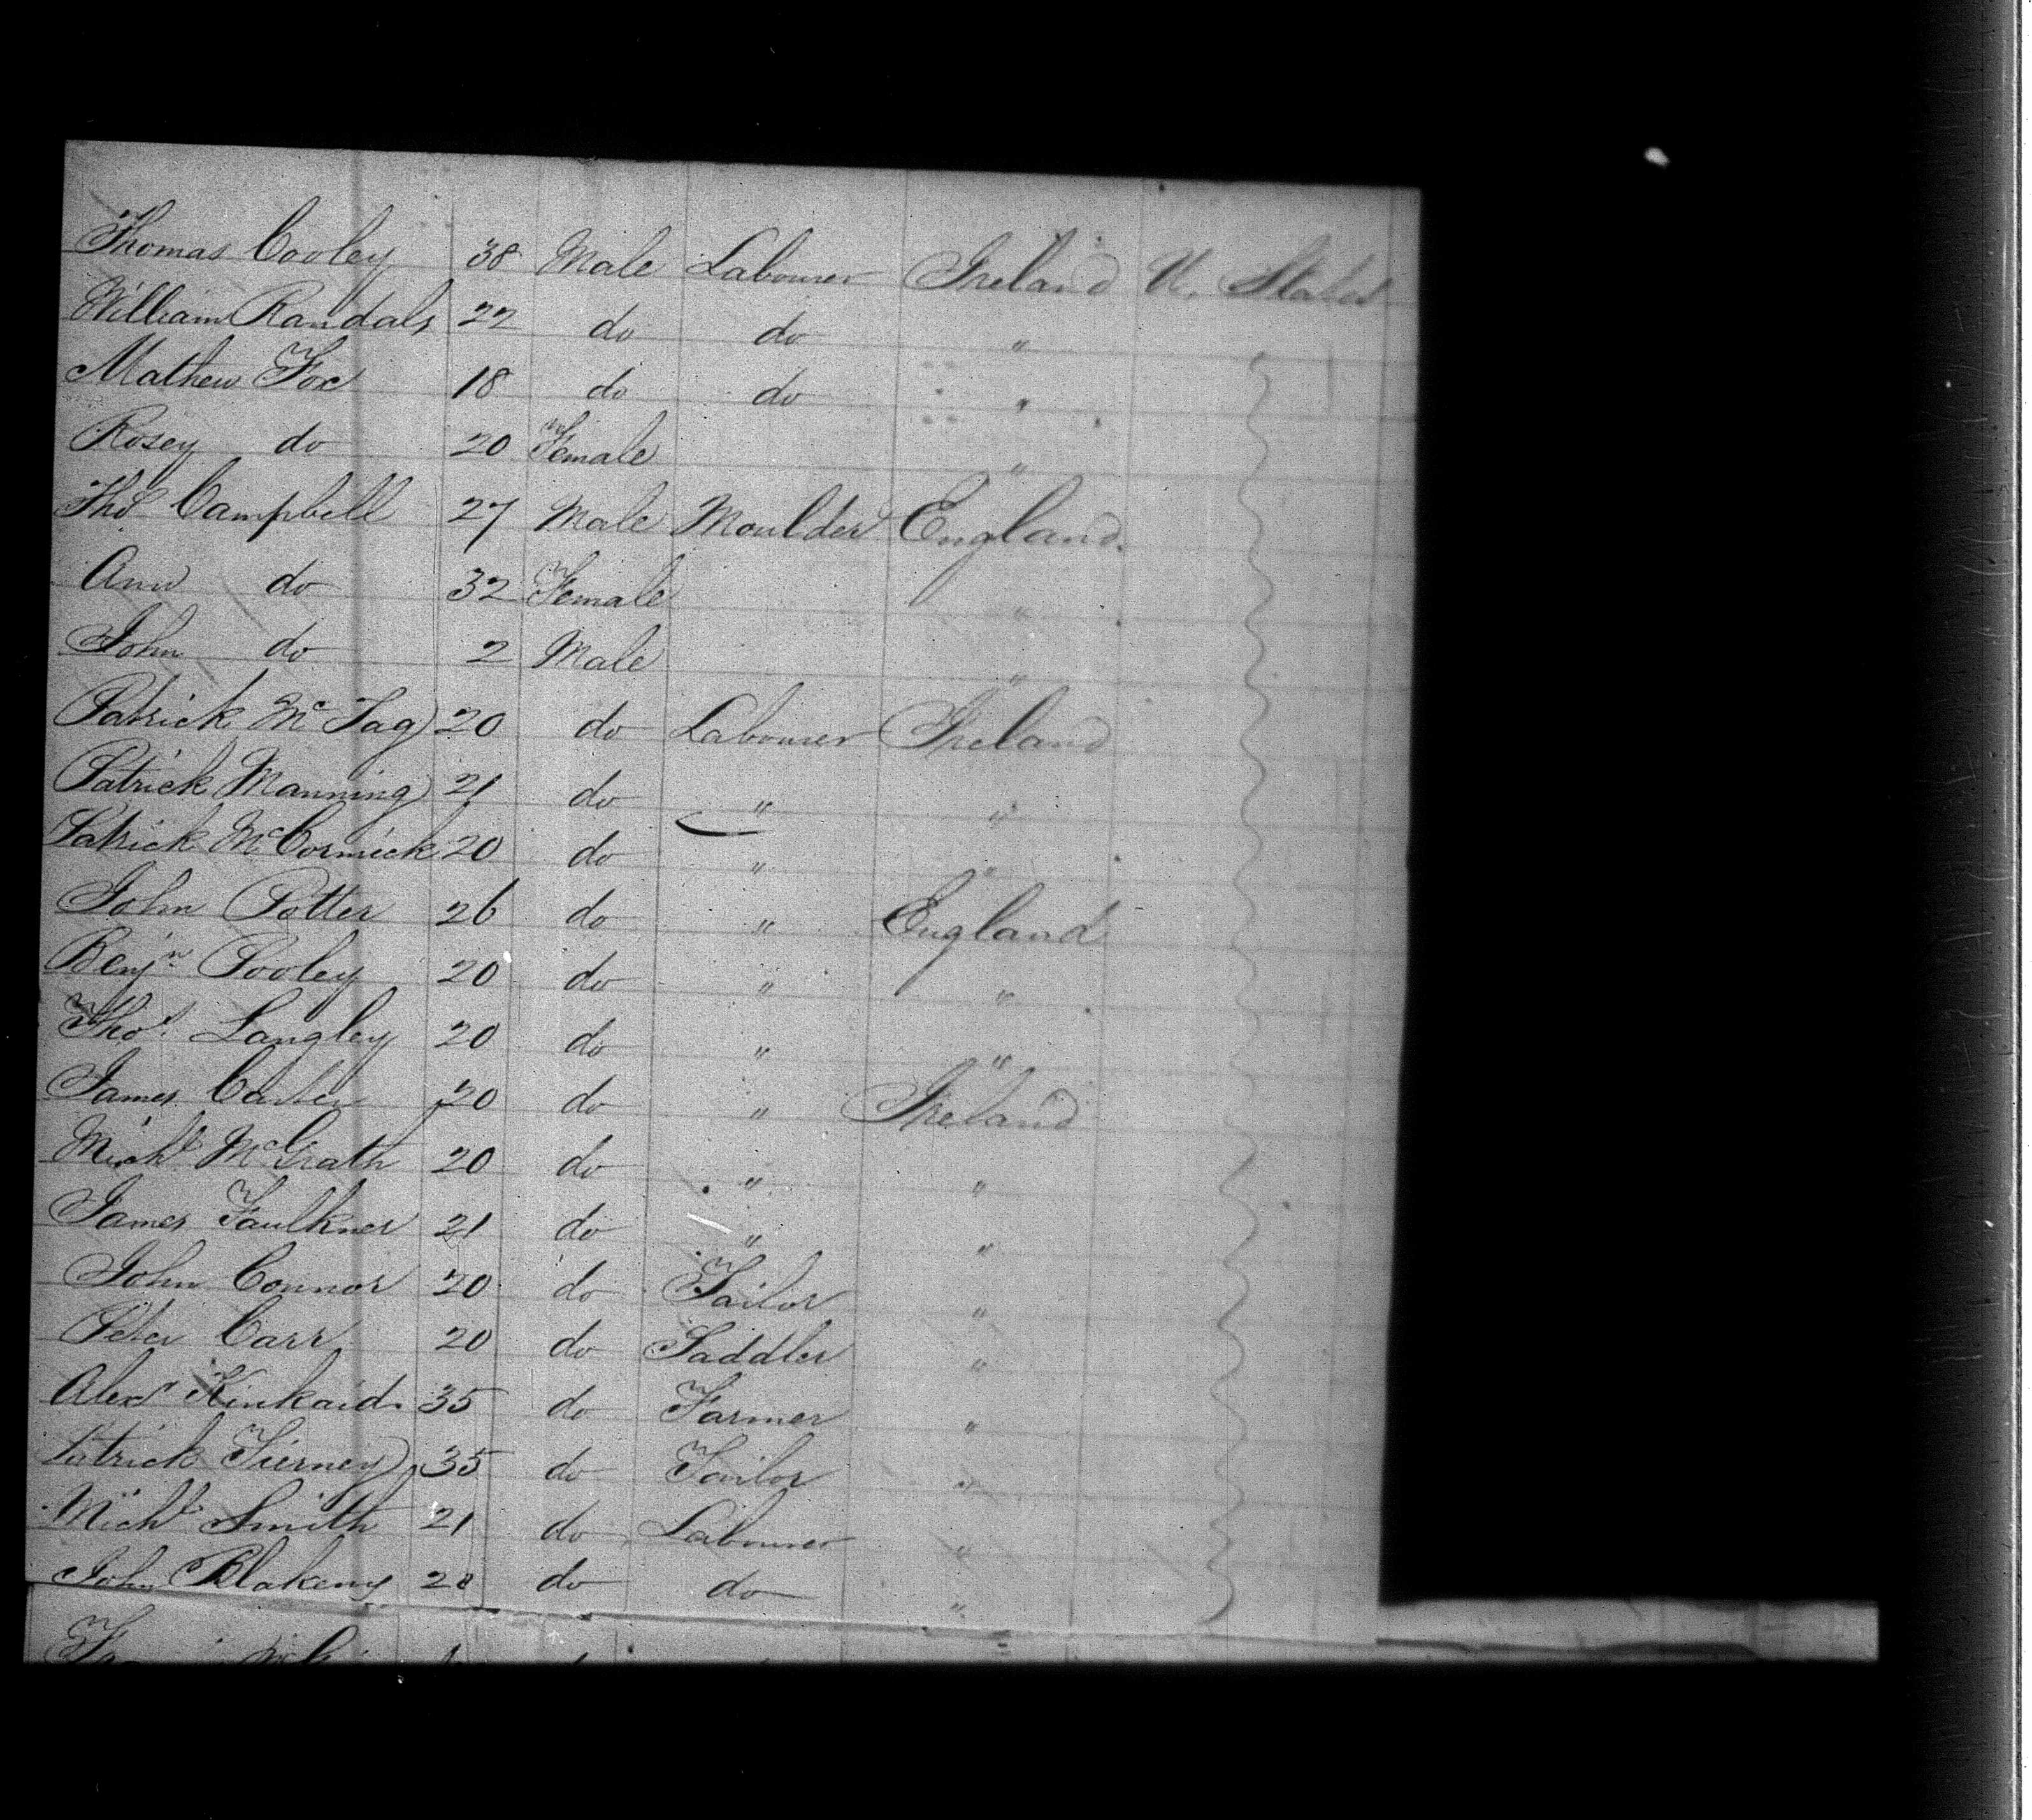 Thomas Cooley 38 Male Labourer Ireland U. States
William Randals 22 do do "
Mathew Fox 18 do do "
Rosey do 20 Female "
Thos Campbell 27 Male Moulder England
Ann do 32 Female "
John do 2 Male "
Patrick McTag 20 do Labourer Ireland
Patrick Manning 21 do " "
Patrick McCormick 20 do " "
John Potter 26 do " England
Benjn Pooley 20 do " "
Thos. Langley 20 do " "
James 20 do " Ireland
Michl McGrath 20 do " "
James Faulkner 21 do " "
John Connor 20 do Tailor "
Peter Carr 20 do Saddler "
Alexr Kinkaid 35 do Farmer "
Patrick Tierney 35 do Tailor "
Michl Smith 21 do Labourer "
John Blakeny 28 do do "